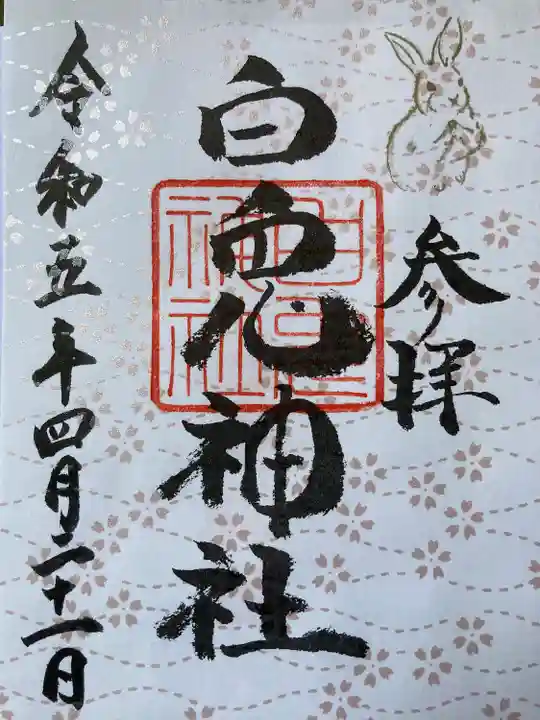 参拝
白兎神社
令和五年四月二十一日